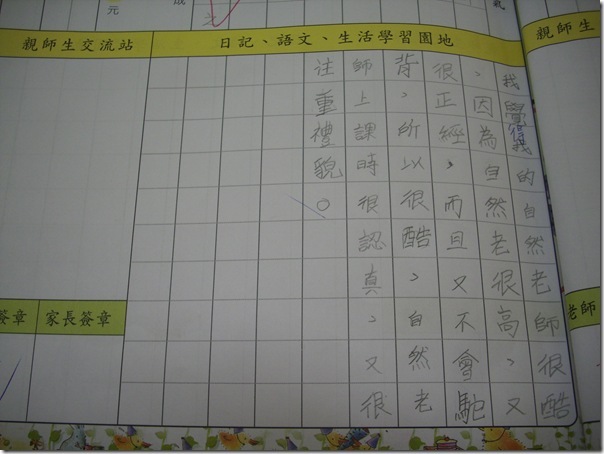 元
親師生交流站
日記、語文、生活學習園地
親師生
我覺得我的自然老師很酷
，因為自然老很高，又
很正經，而且又不會駝
背，所以很酷，自然老
師上課時很認真，又很
注重禮貌。
簽章
家長簽章
老師